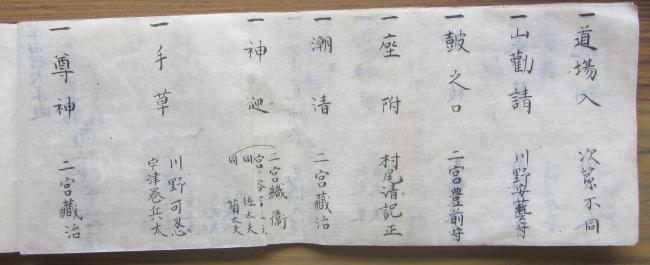 一 道場入 次第不同
一 山勸請 川野安藝守
一 鼓之口 二宮豊前守
一 座附 村尾清記正
一 潮清 二宮藏治
一 神迎 二宮織衛
同 佐太夫
同 菊太夫
一 手草 川野可忍
宇津巻兵太
一 尊神 二宮藏治